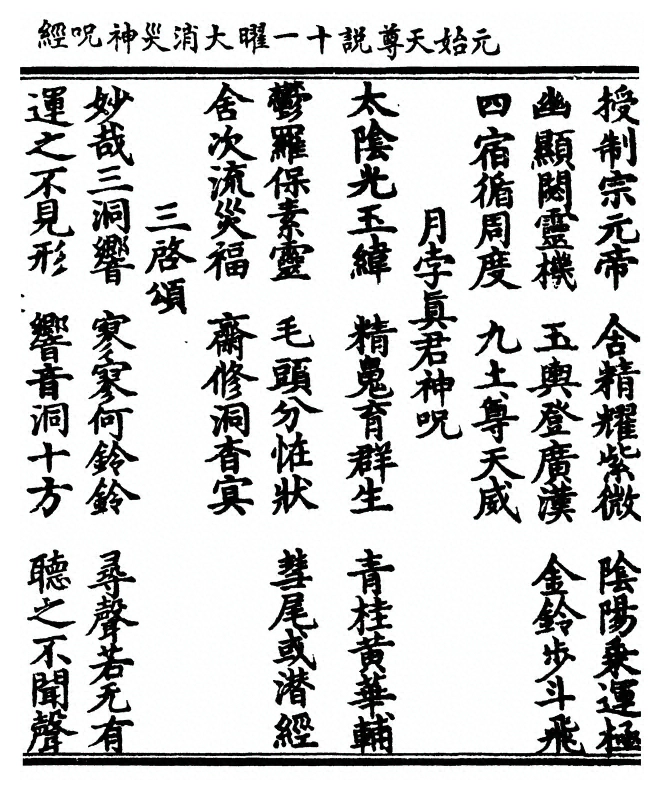 元始天尊説十一曜大消災神呪經
授制宗元帝 含精耀紫微 陰陽乘運極
幽顯閟靈機 玉輿登廣漢 金鈴步斗飛
四宿循周度 九土尊天威
月孛眞君神呪
太陰光玉緯 精䰟育群生 青桂黄華輔
鬱羅保素靈 毛頭分恠狀 彗尾或潛經
舍次流災福 齋修洞杳冥
三啓頌
妙哉三洞響 寥寥何鈴鈴 尋聲若无有
運之不見形 響音洞十方 聽之不聞聲